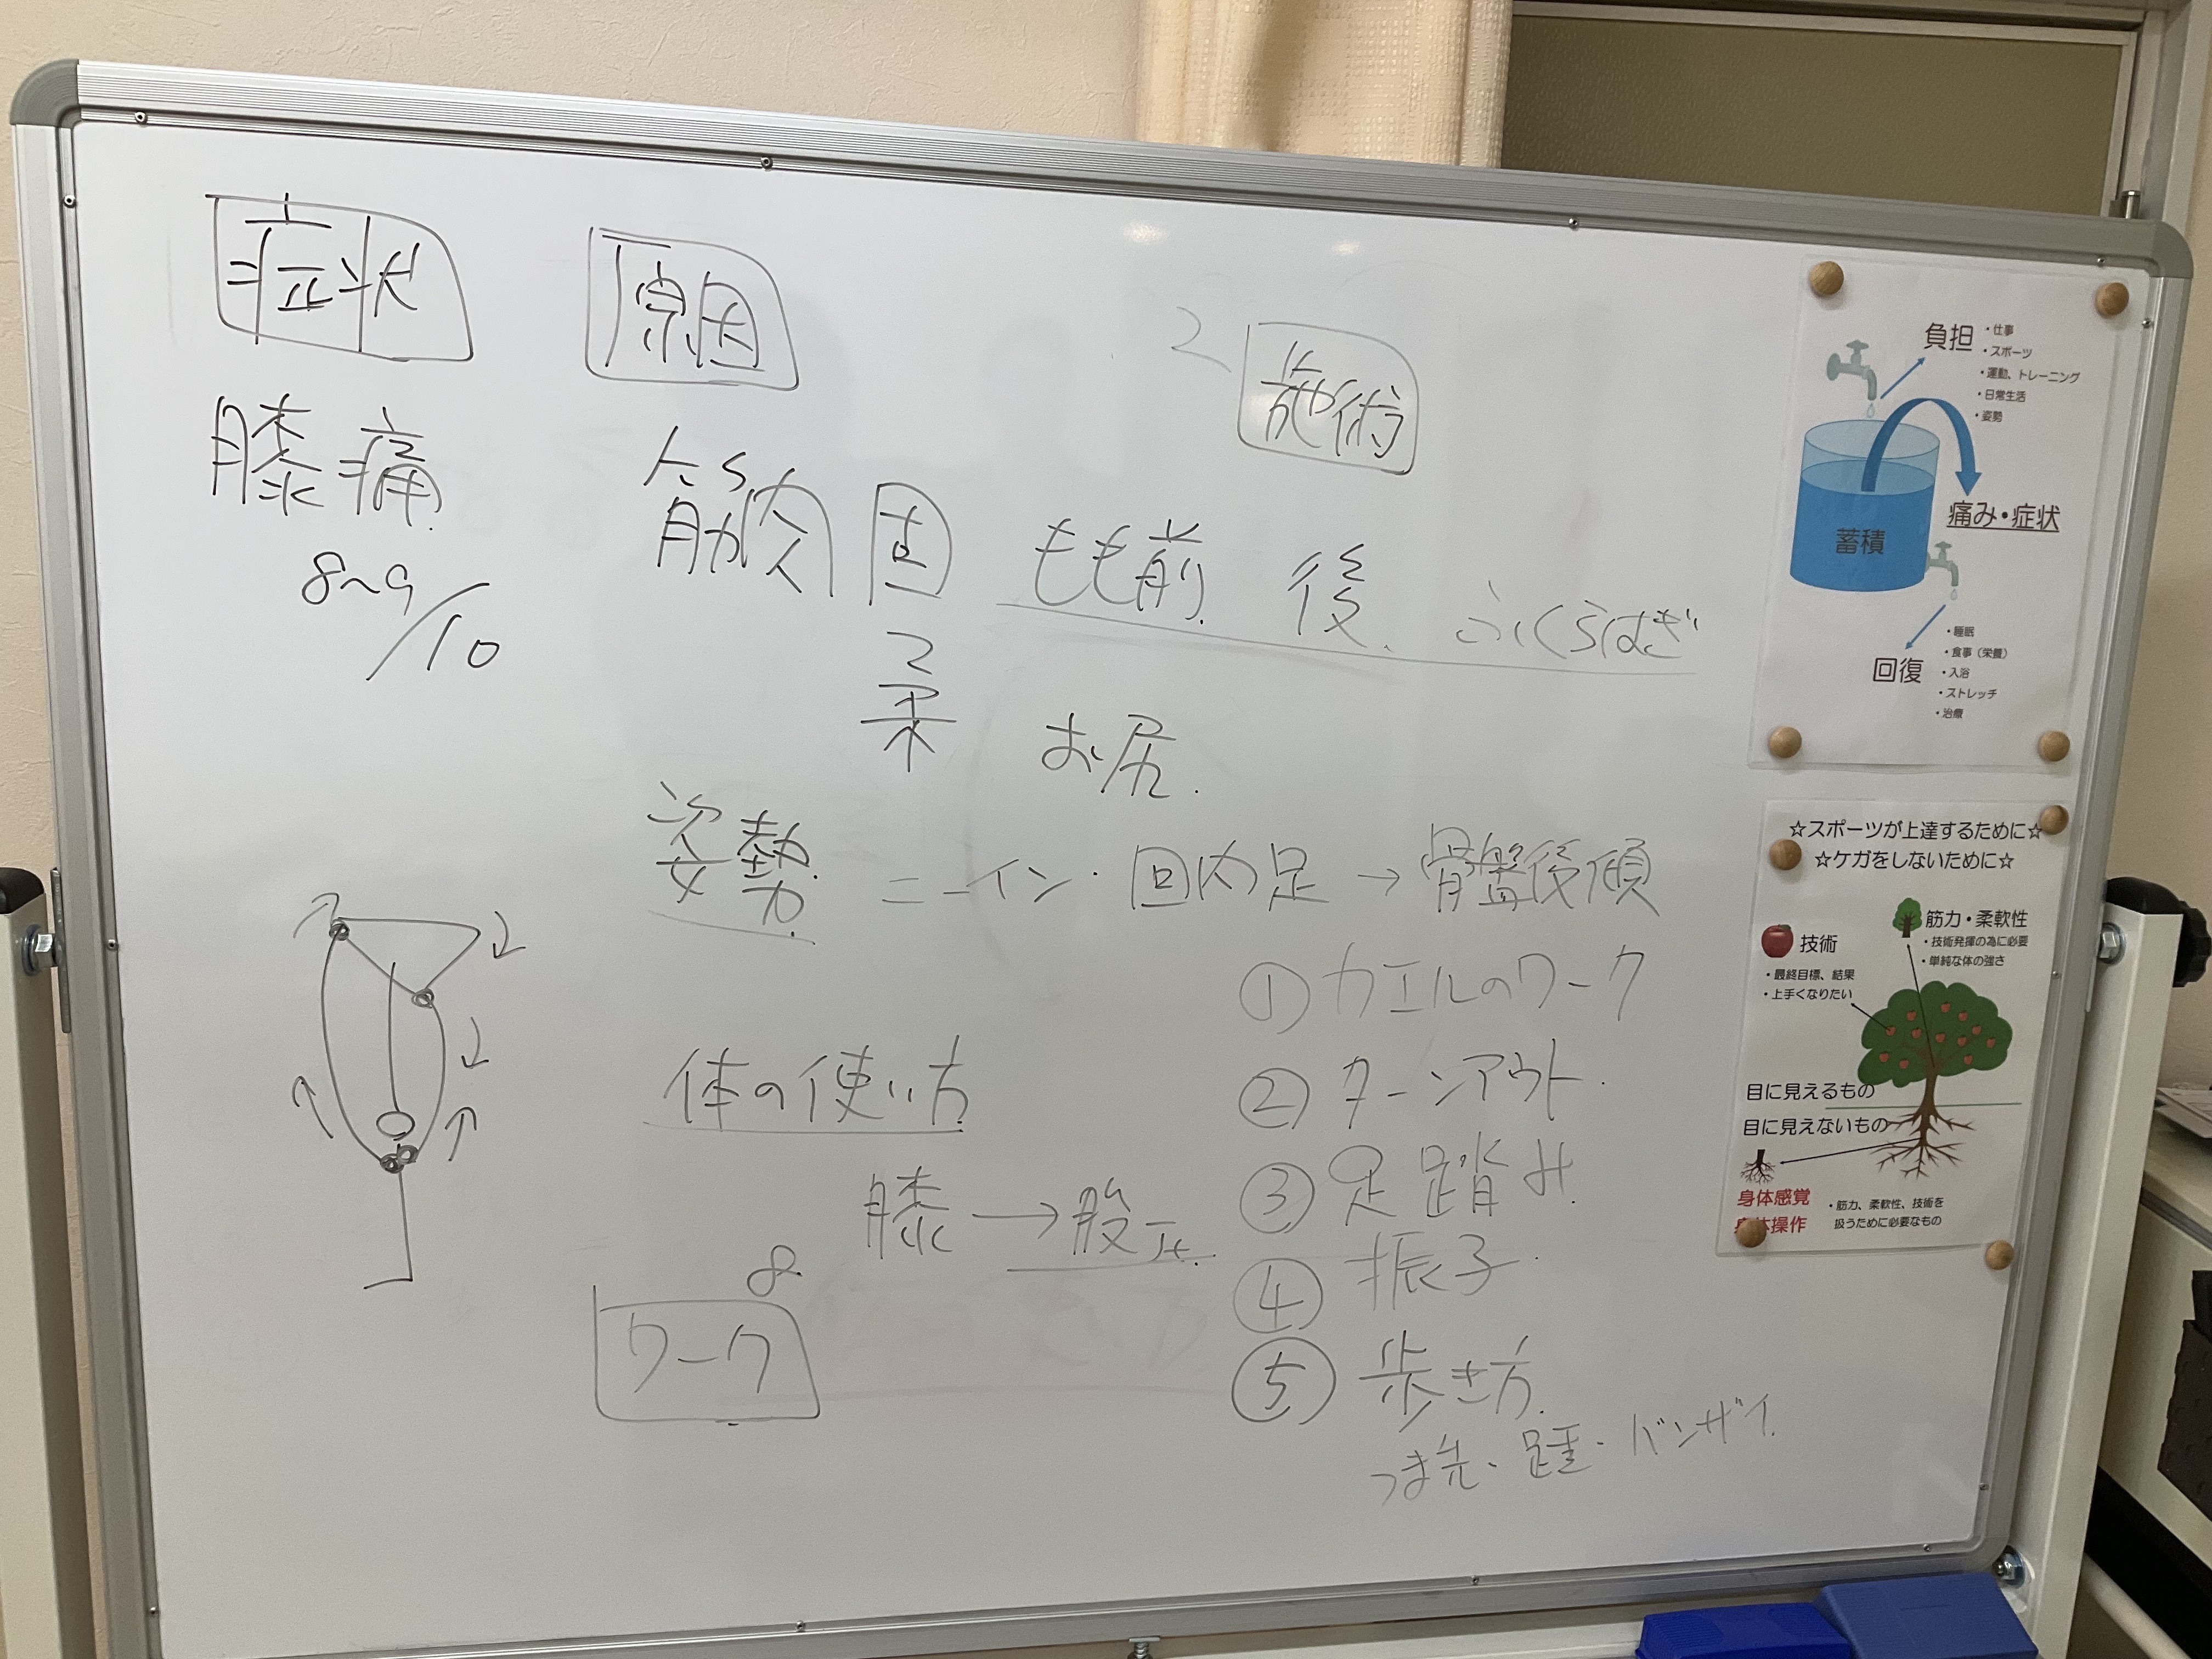 症状
原因
2
施術
膝痛
8~9/10
筋肉 固 もも前 後 ふくらはぎ
柔 お尻
姿勢 ニーイン・回内足→骨盤後傾
体の使い方
膝→股
8
ワーク
①カエルのワーク
②ターンアウト
③足踏み
④振子
⑤歩き方
つま先・踵・バンザイ
負担
・仕事
・スポーツ
・運動、トレーニング
・日常生活
・姿勢
蓄積
痛み・症状
回復
・睡眠
・食事（栄養）
・入浴
・ストレッチ
・治療
☆スポーツが上達するために☆
☆ケガをしないために☆
技術
・最終目標、結果
・上手くなりたい
筋力・柔軟性
・技術発揮の為に必要
・単純な体の強さ
目に見えるもの
目に見えないもの
身体感覚
身体操作
・筋力、柔軟性、技術を
扱うために必要なもの